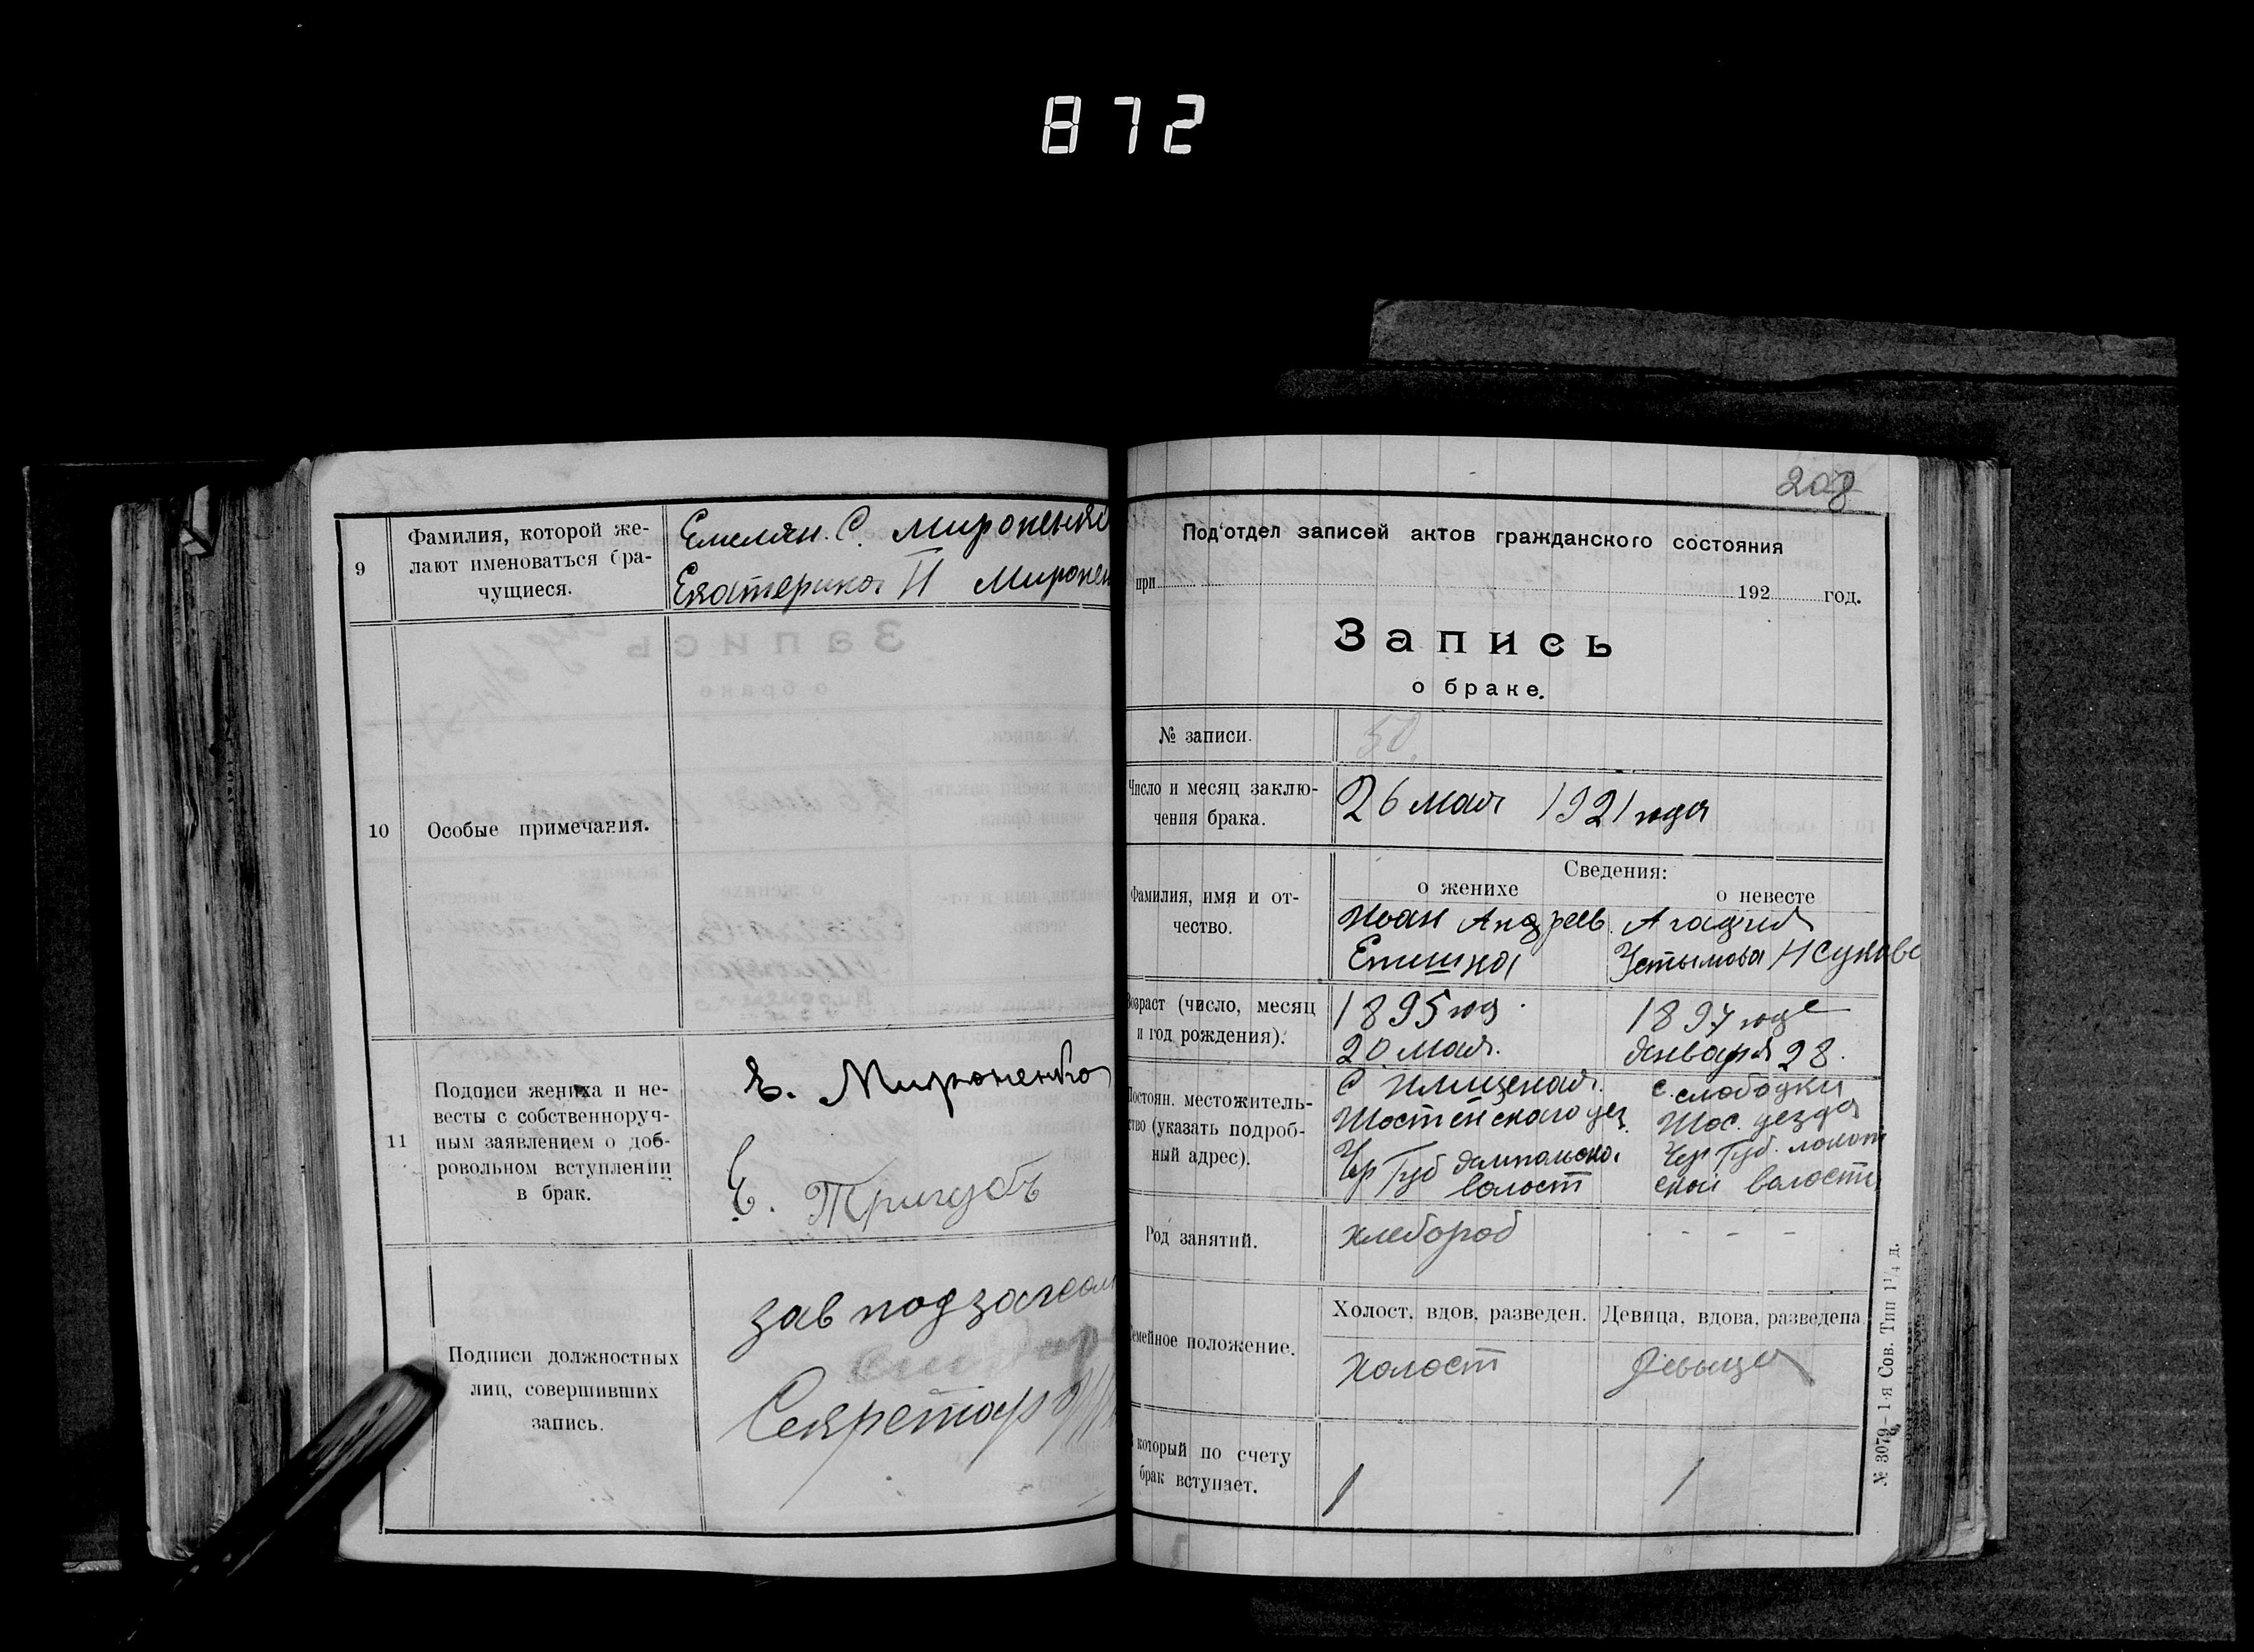 872
9
Фамилия, которой же-
лают именоваться бра-
чущиеся.
Емелян. С. Мироненко
Екатерина П Миронен
10
Особые примечания.
11
Подписи жениха и не-
весты с собственноруч-
ным заявлением о доб-
ровольном вступлении
в брак.
Е. Мироненко
Е. Тригубъ
Подписи должностных
лиц, совершивших
запись.
зав подзагсом
Секретарь
208
Под'отдел записей актов гражданского состояния
при 192 год.
Запись
о браке.
№ записи.
50.
Число и месяц заклю-
чения брака.
26 мая 1921 года
Сведения:
о женихе
о невесте
Фамилия, имя и от-
чество.
Иоан Андреев.
Епишка
Агафия
Устымова
Возраст (число, месяц
и год рождения).
1895 год.
20 мая.
1897 годе
Января 28.
Постоян. местожитель-
ство (указать подроб-
ный адрес).
С
Шостенского уез.
Чер Губ Ямпольско.
волост
с. слободки
Шос. уезда
Чер Губ.
ской волости
Род занятий.
хлебороб
- - - -
Семейное положение.
Холост, вдов, разведен.
Девица, вдова, разведена
холост
Девыца
В который по счету
брак вступает.
1
1
№ 3079—1-я Сов. Тип 1¹/₄ д.